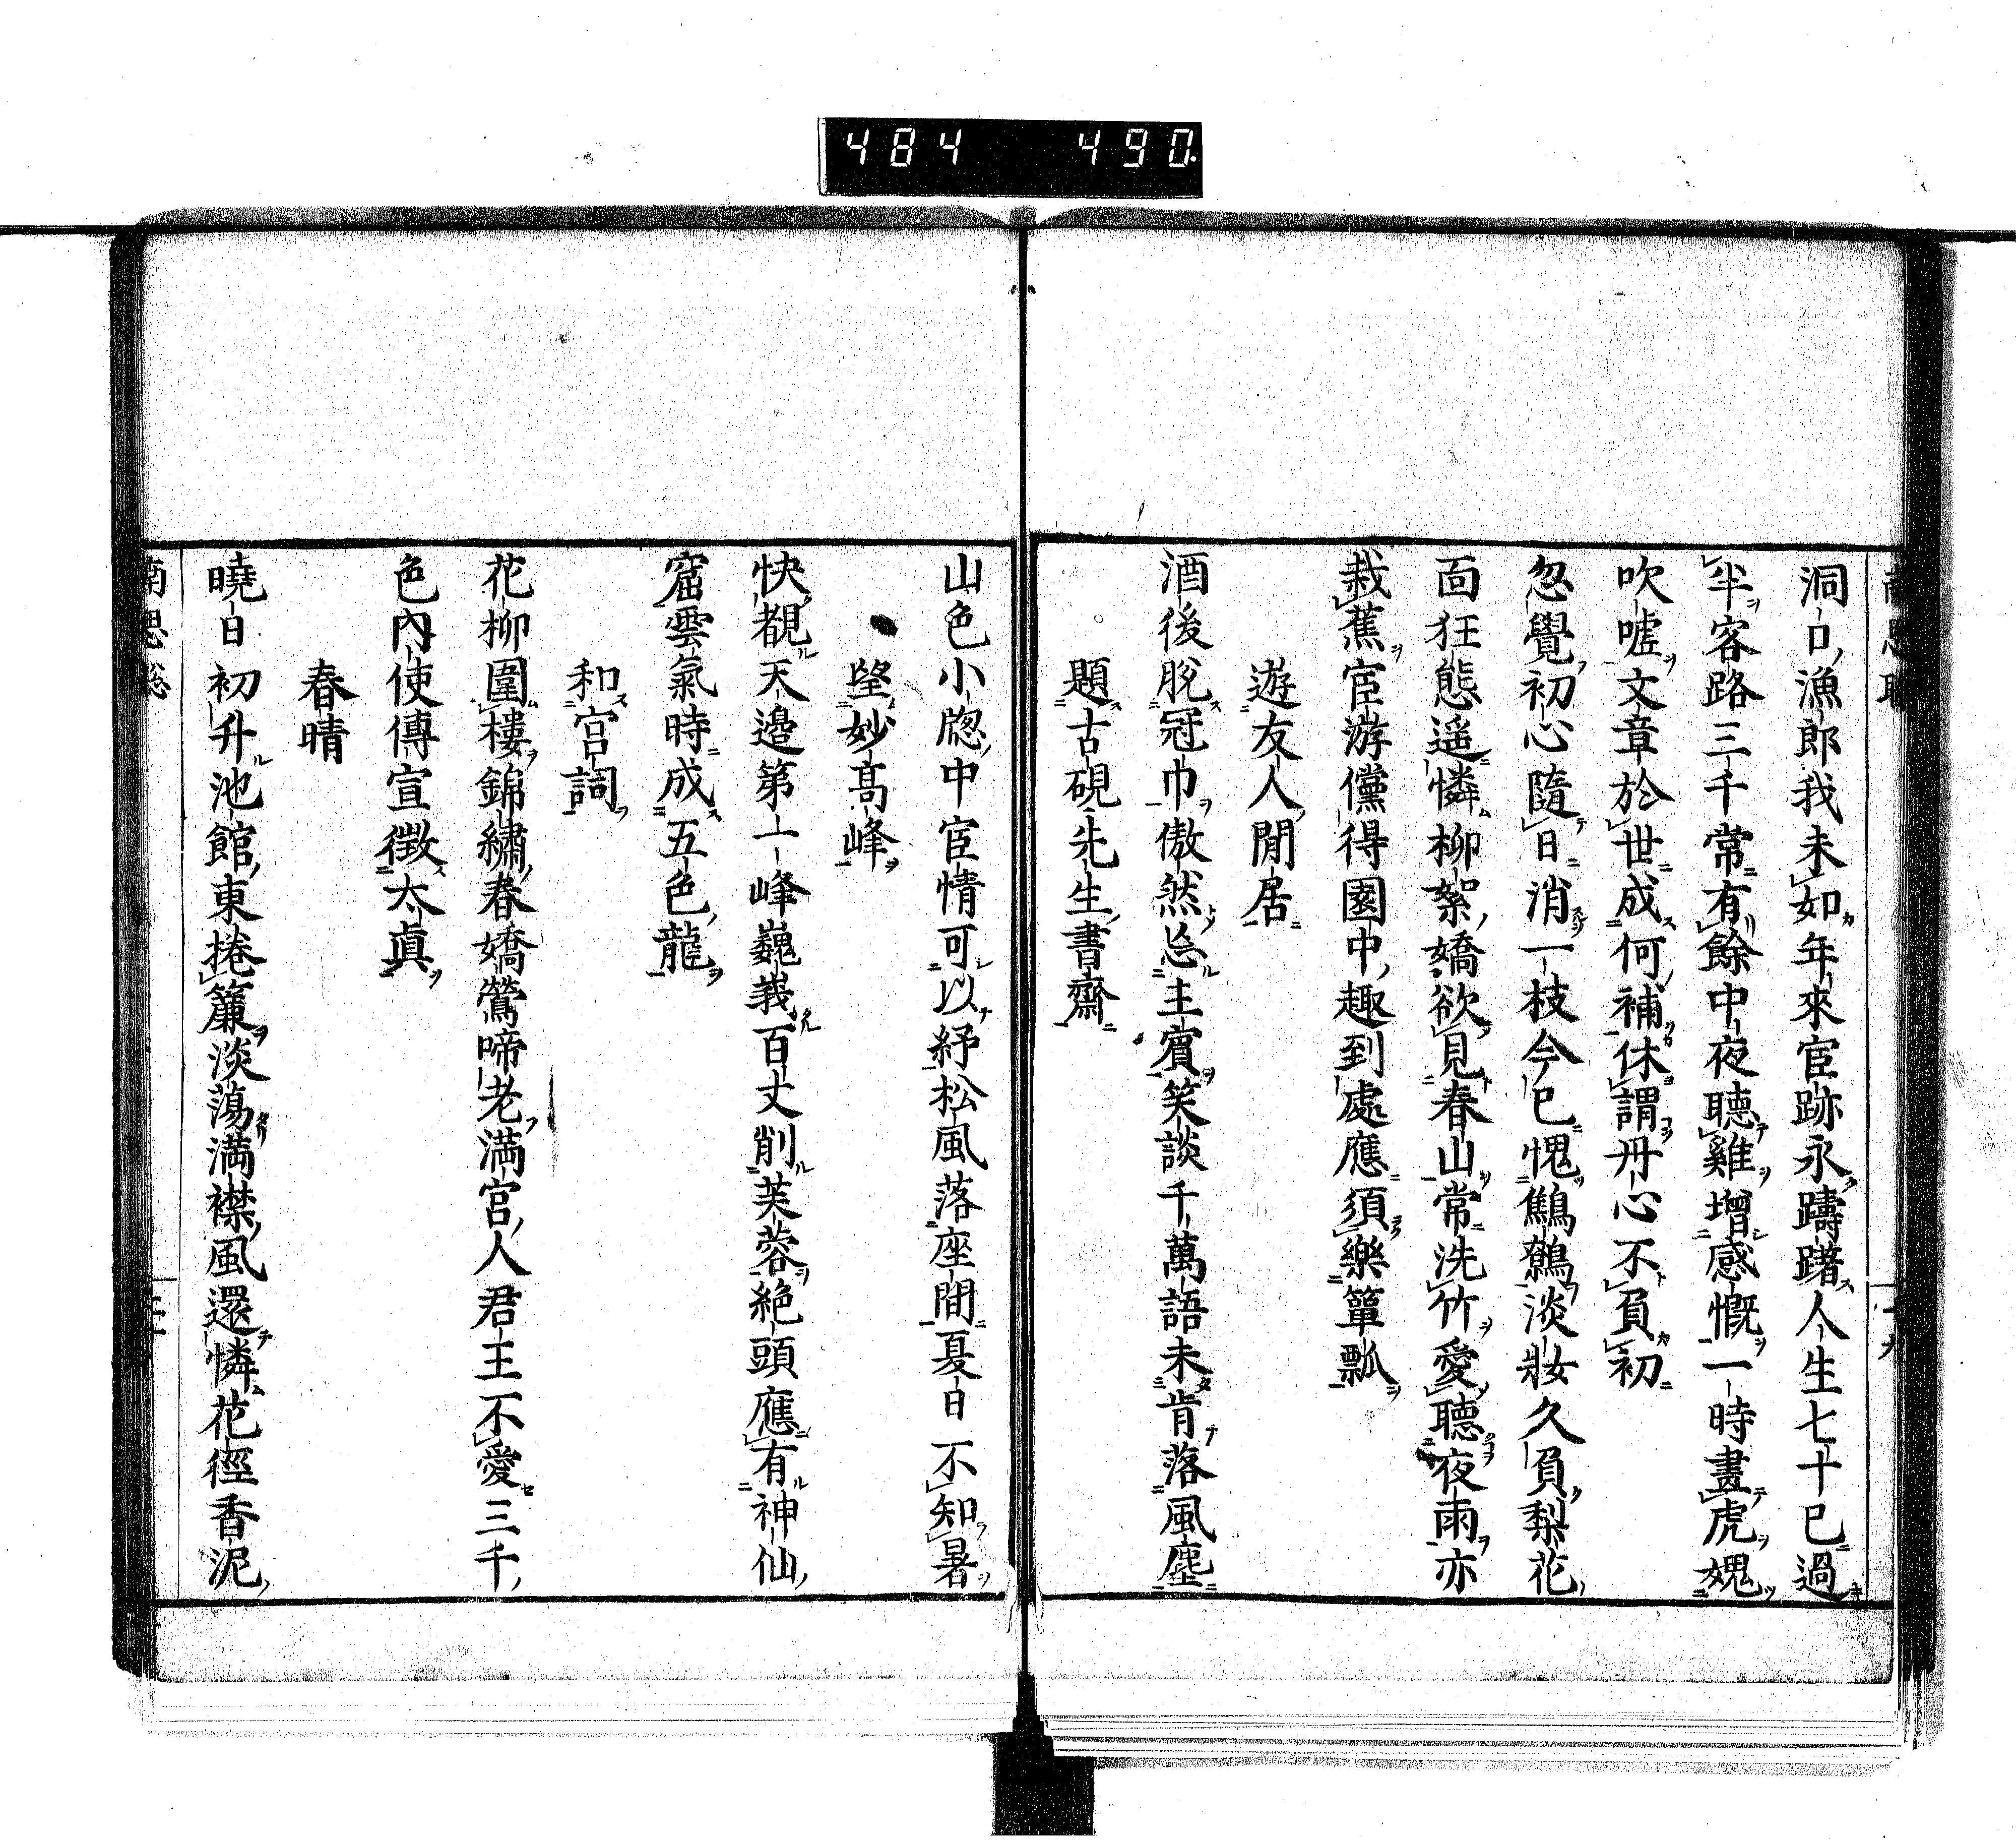 484 490
洞口漁郎我未如年來宦跡永躊躇人生七十已過
半客路三千常有餘中夜聴雞增感慨一時畫虎媿
吹嘘文章於世成何補休謂丹心不負初
忽覺初心隨日消一枝今已愧鷦鷯淡妝久負梨花
面狂態遥憐柳絮嬌欲見春山常洗竹愛聴夜雨亦
栽蕉宦游儻得園中趣到處應須樂簞瓢
遊友人閒居
酒後脫冠巾傲然忘主賓笑談千萬語未肯落風塵
題古硯先生書齋
山色小牎中宦情可以紓松風落座間夏日不知暑
望妙高峰
快覩天邉第一峰巍峩百丈削芙蓉絶頭應有神仙
窟雲氣時成五色龍
和宮詞
花柳圍樓錦繡春嬌鶯啼老満宮人君王不愛三千
色內使傳宣徴太眞
春晴
曉日初升池館東捲簾淡蕩満襟風還憐花徑香泥